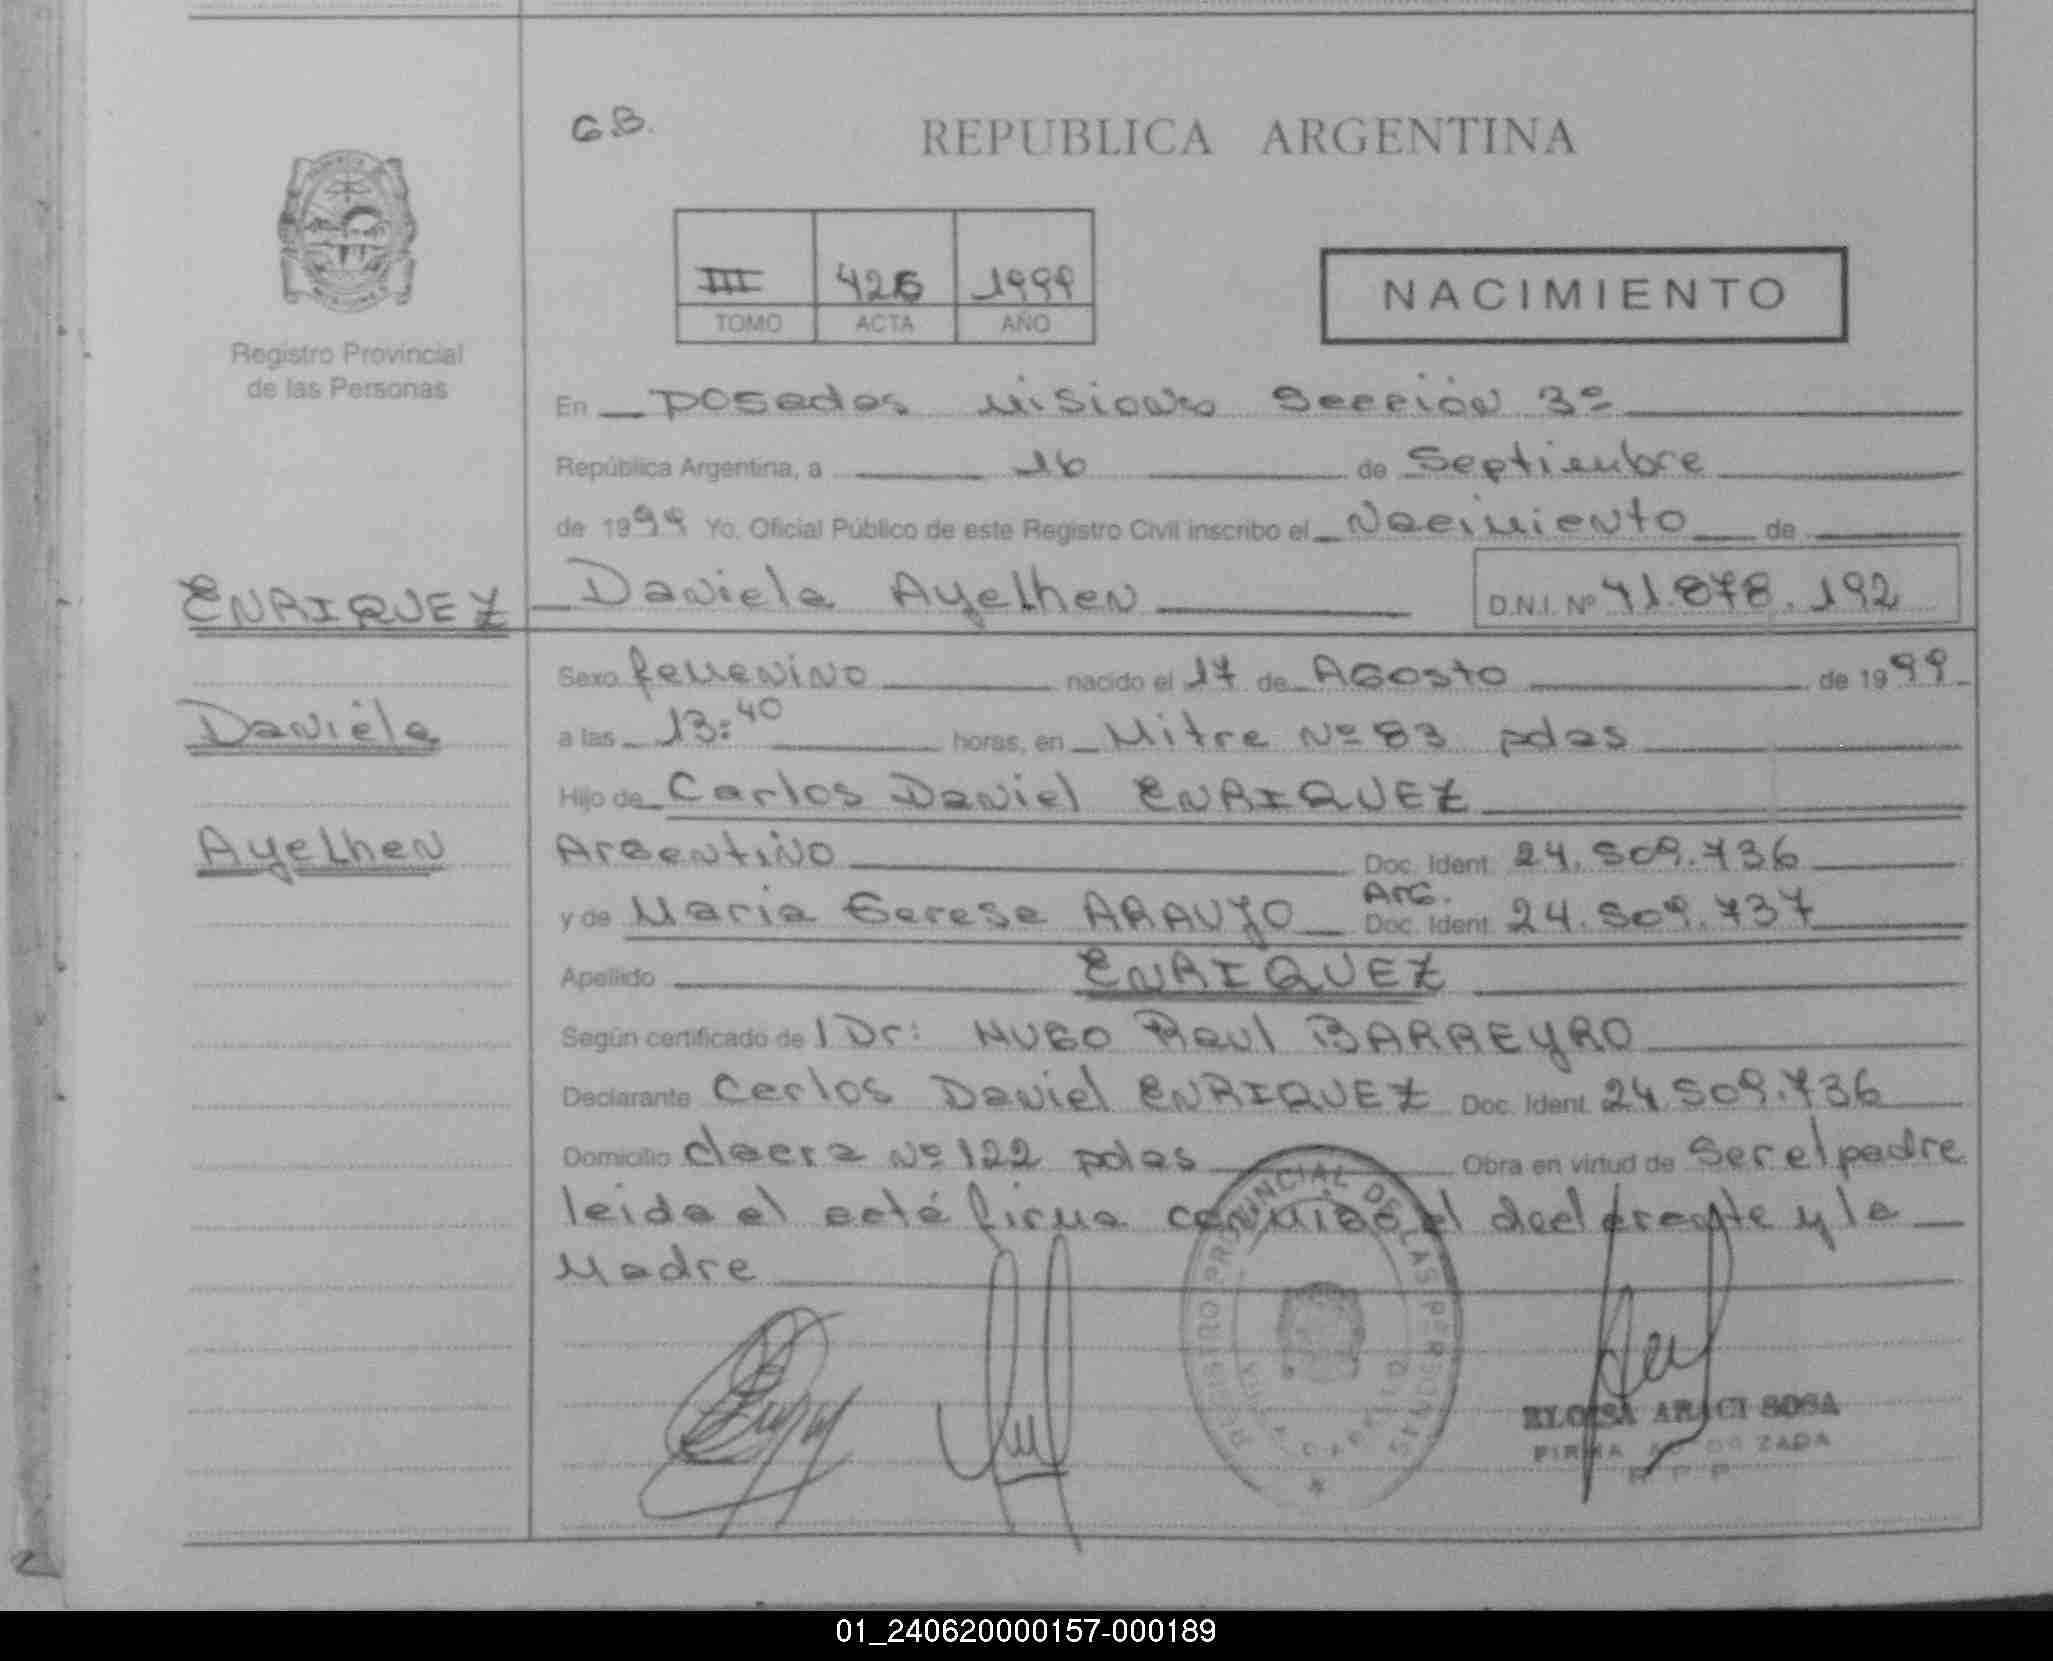 G.B.
REPUBLICA ARGENTINA
III 426 1999
TOMO ACTA AÑO
NACIMIENTO
Registro Provincial
de las Personas
En posadas Misiones Sección 3º
República Argentina, a 16 de Septiembre
de 1999 Yo, Oficial Público de este Registro Civil inscribo el Nacimiento de
ENRIQUEZ Daniela Ayelhen D.N.I. Nº 41.878.192
Sexo femenino nacido el 17 de Agosto de 1999
Daniela a las 13:40 horas, en Mitre Nº 83 pdas
Hijo de Carlos Daniel ENRIQUEZ
Ayelhen Argentino Doc. Ident. 24.509.736
y de Maria Teresa ARAUJO Arg. Doc. Ident. 24.509.737
Apellido ENRIQUEZ
Según certificado de l Dr: HUGO Raul BARREYRO
Declarante Carlos Daniel ENRIQUEZ Doc. Ident. 24.509.736
Domicilio Nº 122 pdas Obra en virtud de Ser el padre
leida el acta firma conmigo el declarante y la
Madre
REGISTRO PROVINCIAL DE LAS PERSONAS
ELOISA ARACI SOSA
FIRMA AUTORIZADA
R P P
01_240620000157-000189